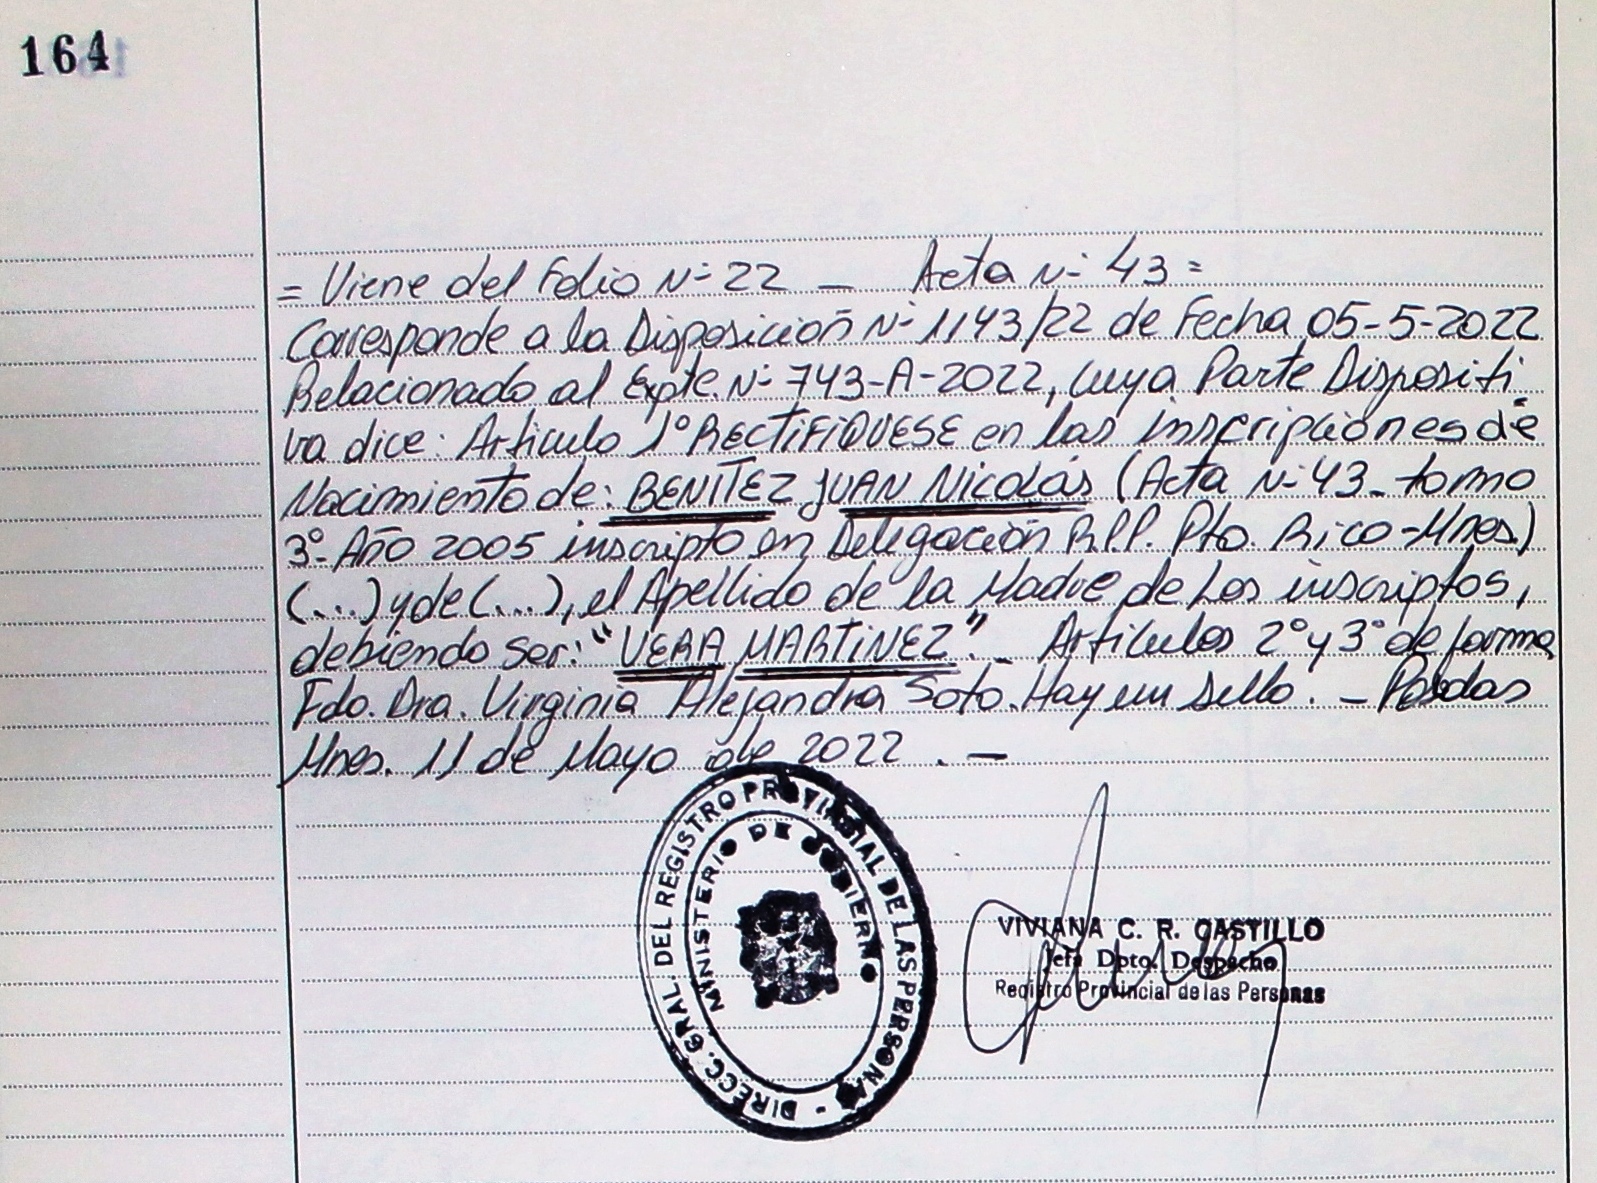 164
= Viene del Folio Nº 22 _ Acta Nº 43 =
Corresponde a la Disposición Nº 1143/22 de Fecha 05-5-2022
Relacionado al Expte. Nº 743-A-2022, cuya Parte Dispositi
va dice: Artículo 1º RECTIFIQUESE en las inscripciones de
Nacimiento de: BENITEZ JUAN NICOLÁS (Acta Nº 43 - tomo
3º - Año 2005 inscripto en Delegación R.P.P. Pto. Rico - Mnes.)
(...) y de (...), el Apellido de la Madre de Los inscriptos,
debiendo ser: "VERA MARTINEZ". _ Artículos 2º y 3º de forma
Fdo. Dra. Virginia Alejandra Soto. Hay un sello. _ Posadas
Mnes. 11 de Mayo de 2022 . —
DIRECC. GRAL. DEL REGISTRO PROVINCIAL DE LAS PERSONAS -
MINISTERIO DE GOBIERNO
VIVIANA C. R. CASTILLO
Jefa Dpto. Despacho
Registro Provincial de las Personas